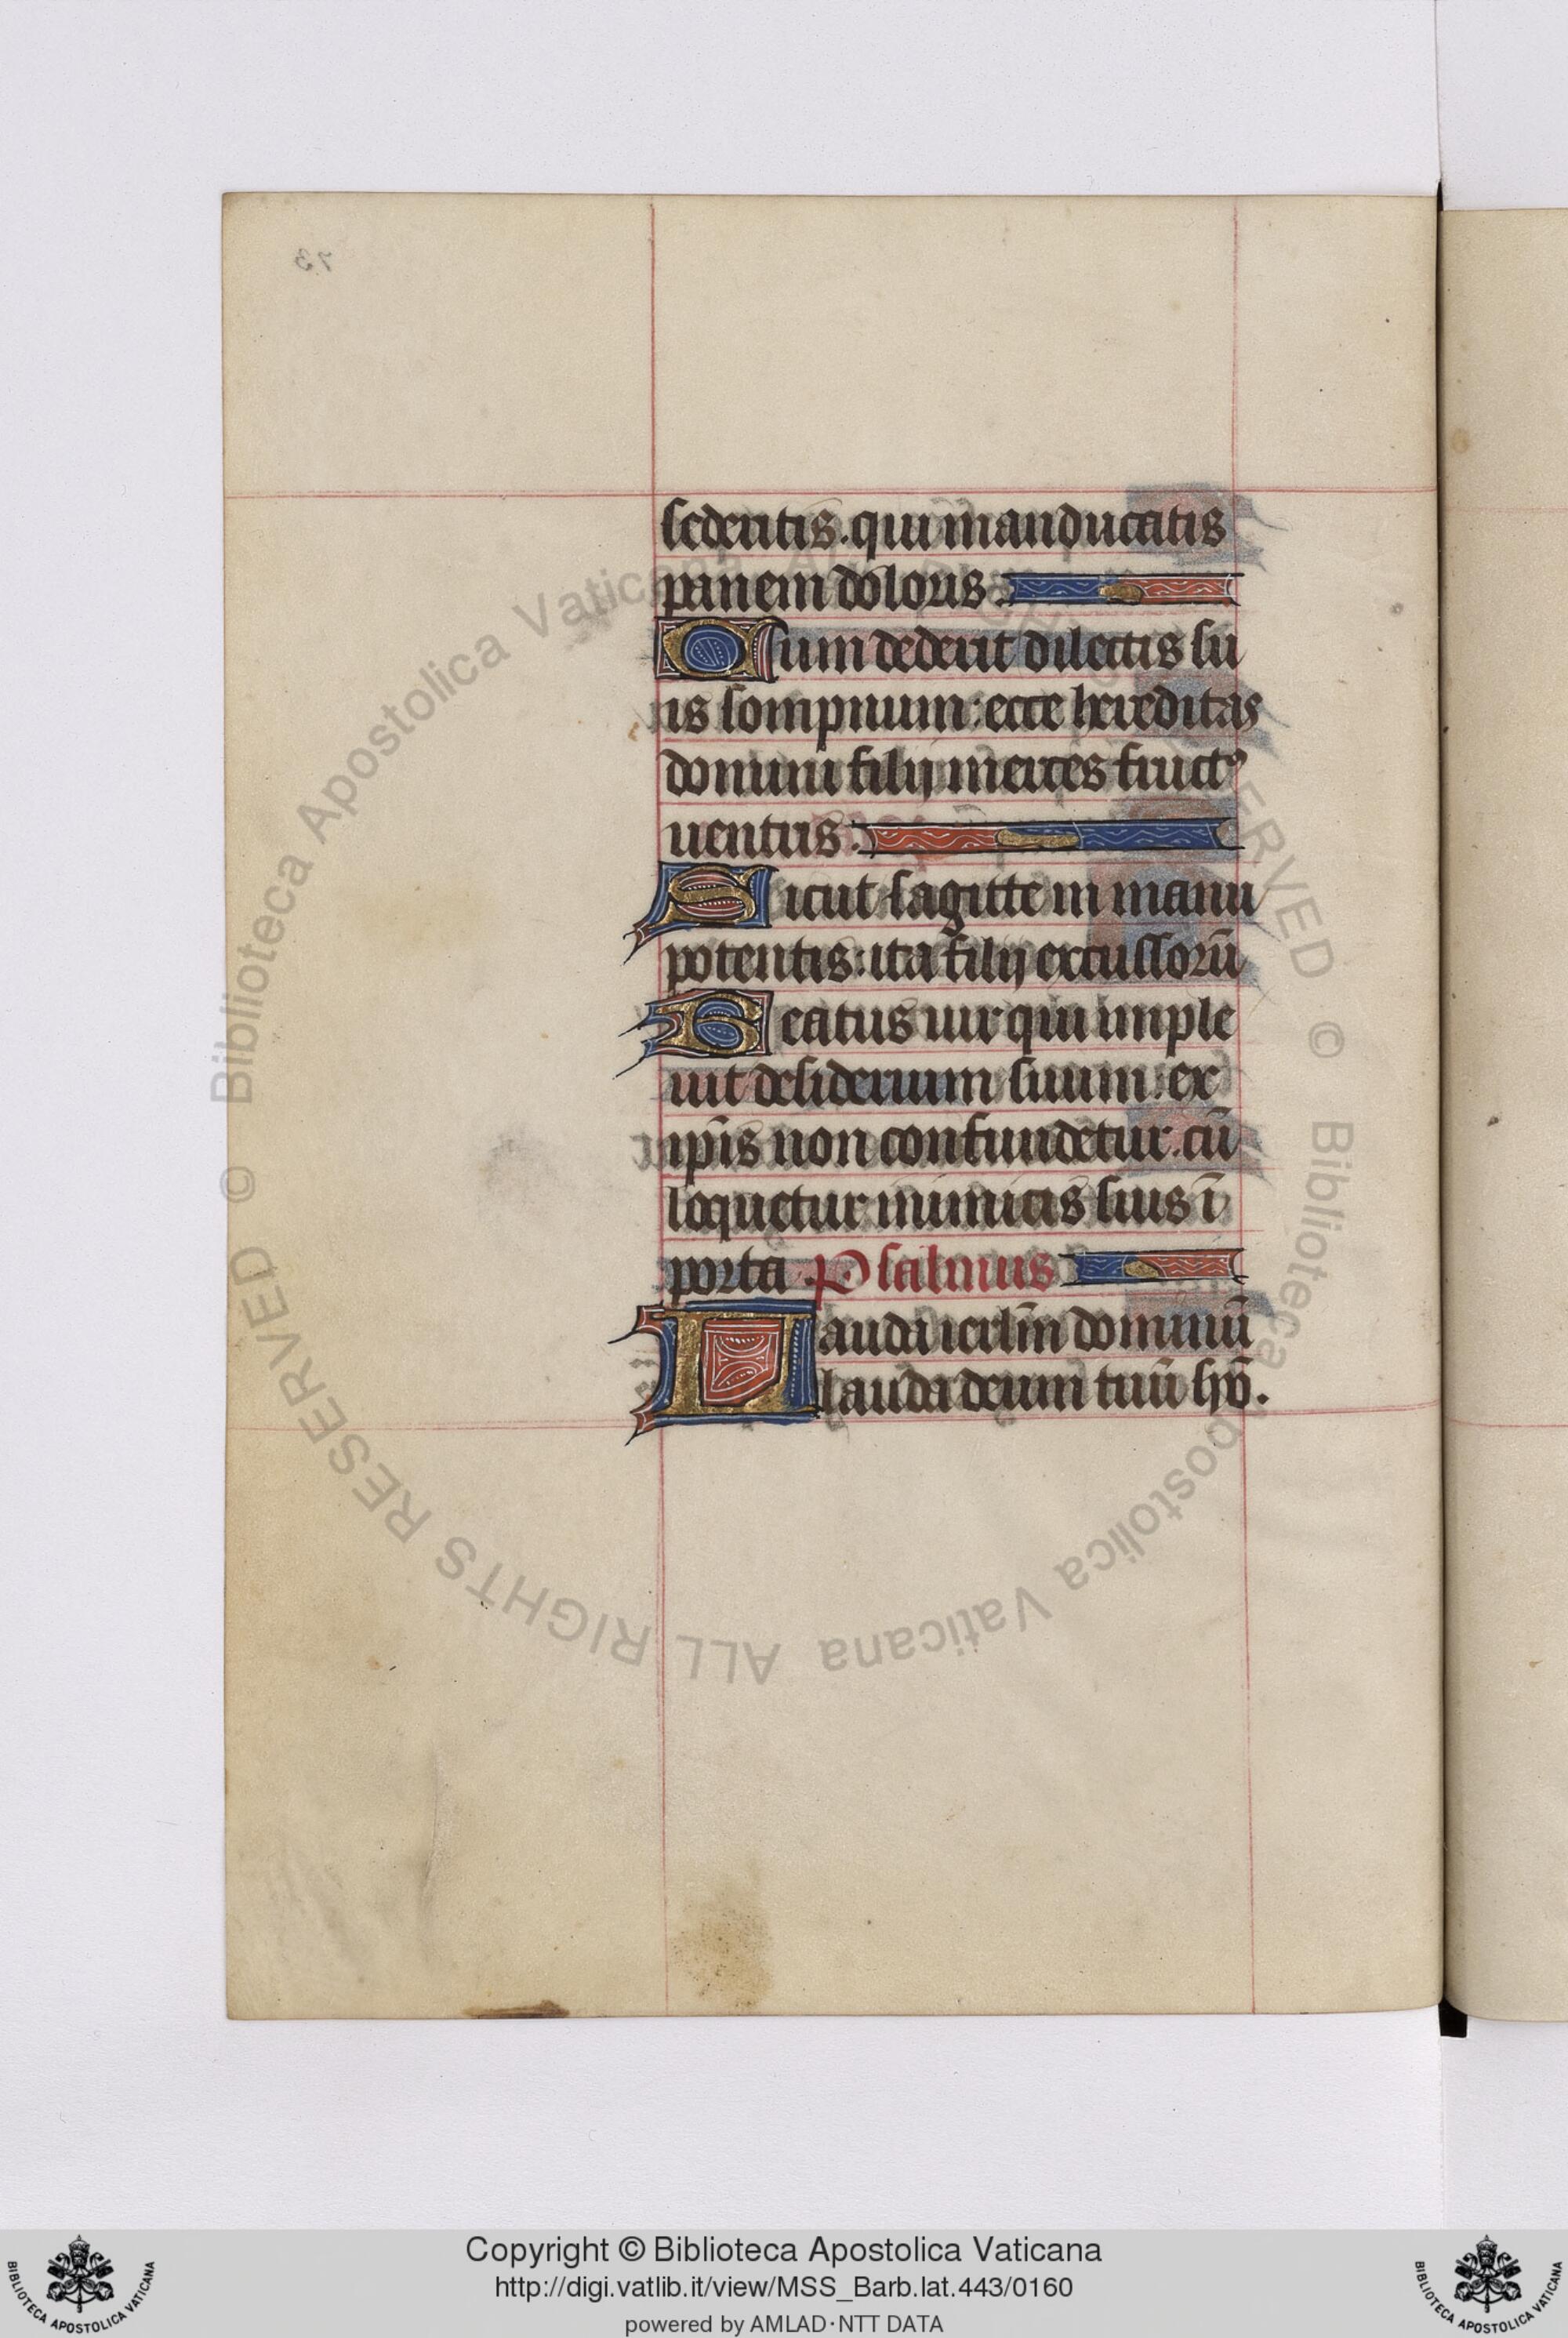 sedentis. qui manducatis
panem doloris.
Cum dederit dilectis su
is sompnum: ecce hereditas
domini filij merces fructꝰ
uentris.
Sicut sagitte in manu
potentis: ita filij excussorū
Beatus uir qui imple
uit desiderium suum: ex
ip̄is non confundetur. cū
loquetur inimicis suis ī
porta. Psalmus
Lauda ierlm̄ dominū
lauda deum tuū syō.
73
© Biblioteca Apostolica Vaticana ALL RIGHTS RESERVED
© Biblioteca Apostolica Vaticana ALL RIGHTS RESERVED
Copyright © Biblioteca Apostolica Vaticana
http://digi.vatlib.it/view/MSS_Barb.lat.443/0160
powered by AMLAD·NTT DATA
BIBLIOTECA APOSTOLICA VATICANA
BIBLIOTECA APOSTOLICA VATICANA